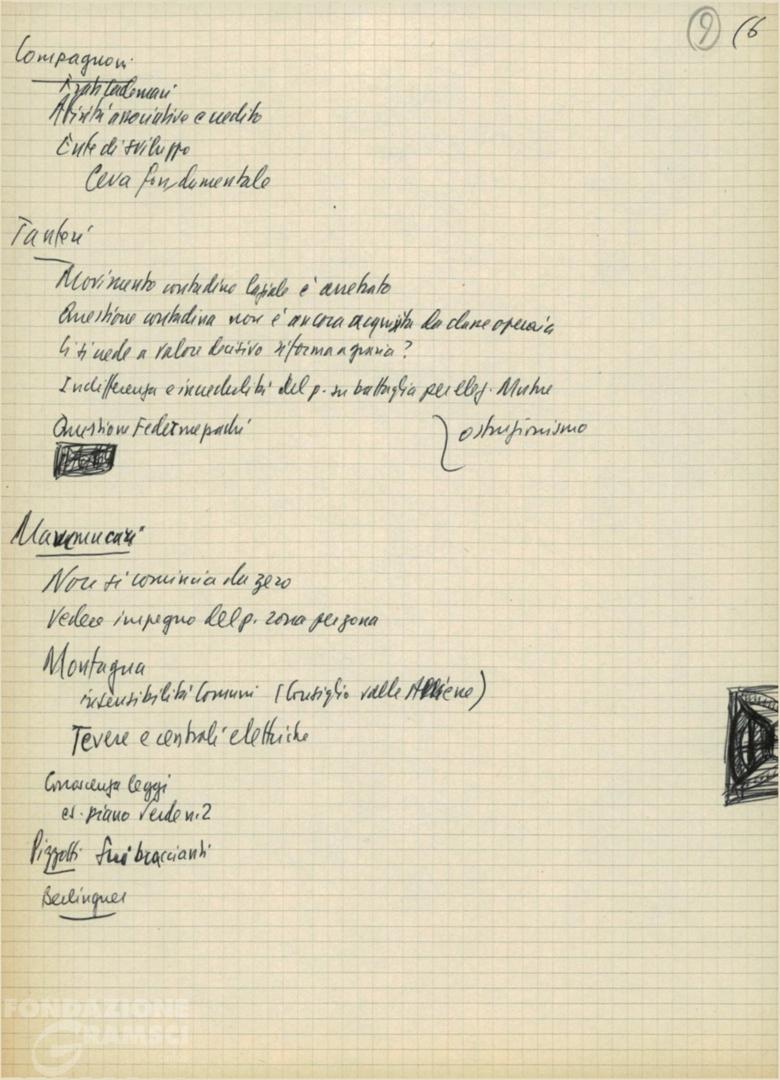 9 (6
Compagnoni
Attività associative e credito
Ente di sviluppo
Ceva fondamentale
Tanteri
Movimento contadino laziale è arretrato
Questione contadina non è ancora acquisita da classe operaia
Ci si crede a valore decisivo riforma agraria?
Indifferenza e incredulità del p. su battaglia per elez. Mutue
Questione Federmepadri } ostruzionismo
Mammucari
Non si comincia da zero
Vedere impegno del p. zona per zona
Montagna
insensibilità Comuni (Consiglio valle Aniene)
Tevere e centrali elettriche
Conoscenza leggi
es. piano verde n. 2
Pizzotti Sui braccianti
Berlinguer
FONDAZIONE
GRAMSCI